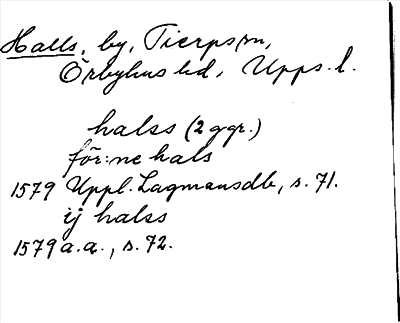 Halls, by, Tierps sn,
Örbyhus hd, Upps. l.
halss (2 ggr.)
för:ne hals
1579 Uppl. Lagmansdb, s. 71.
ij halss
1579 a.a., s. 72.